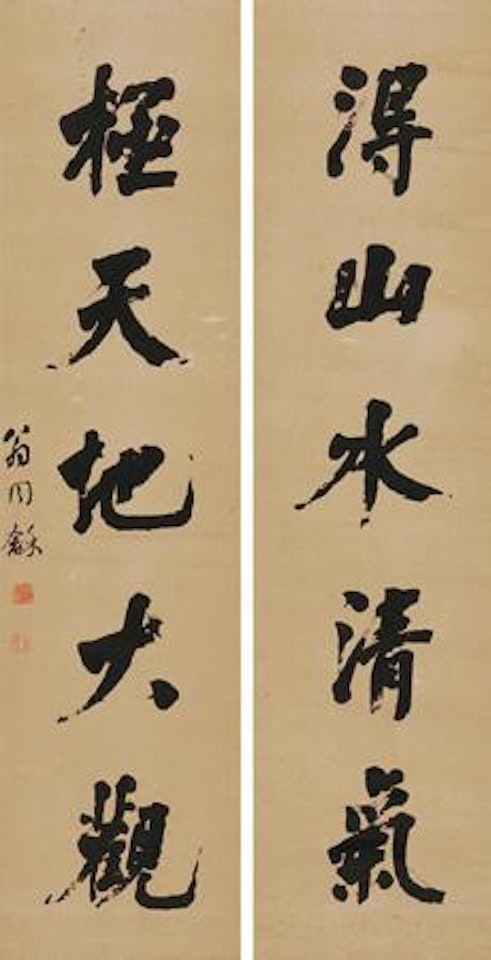 得山水清氣
極天地大觀
翁同龢